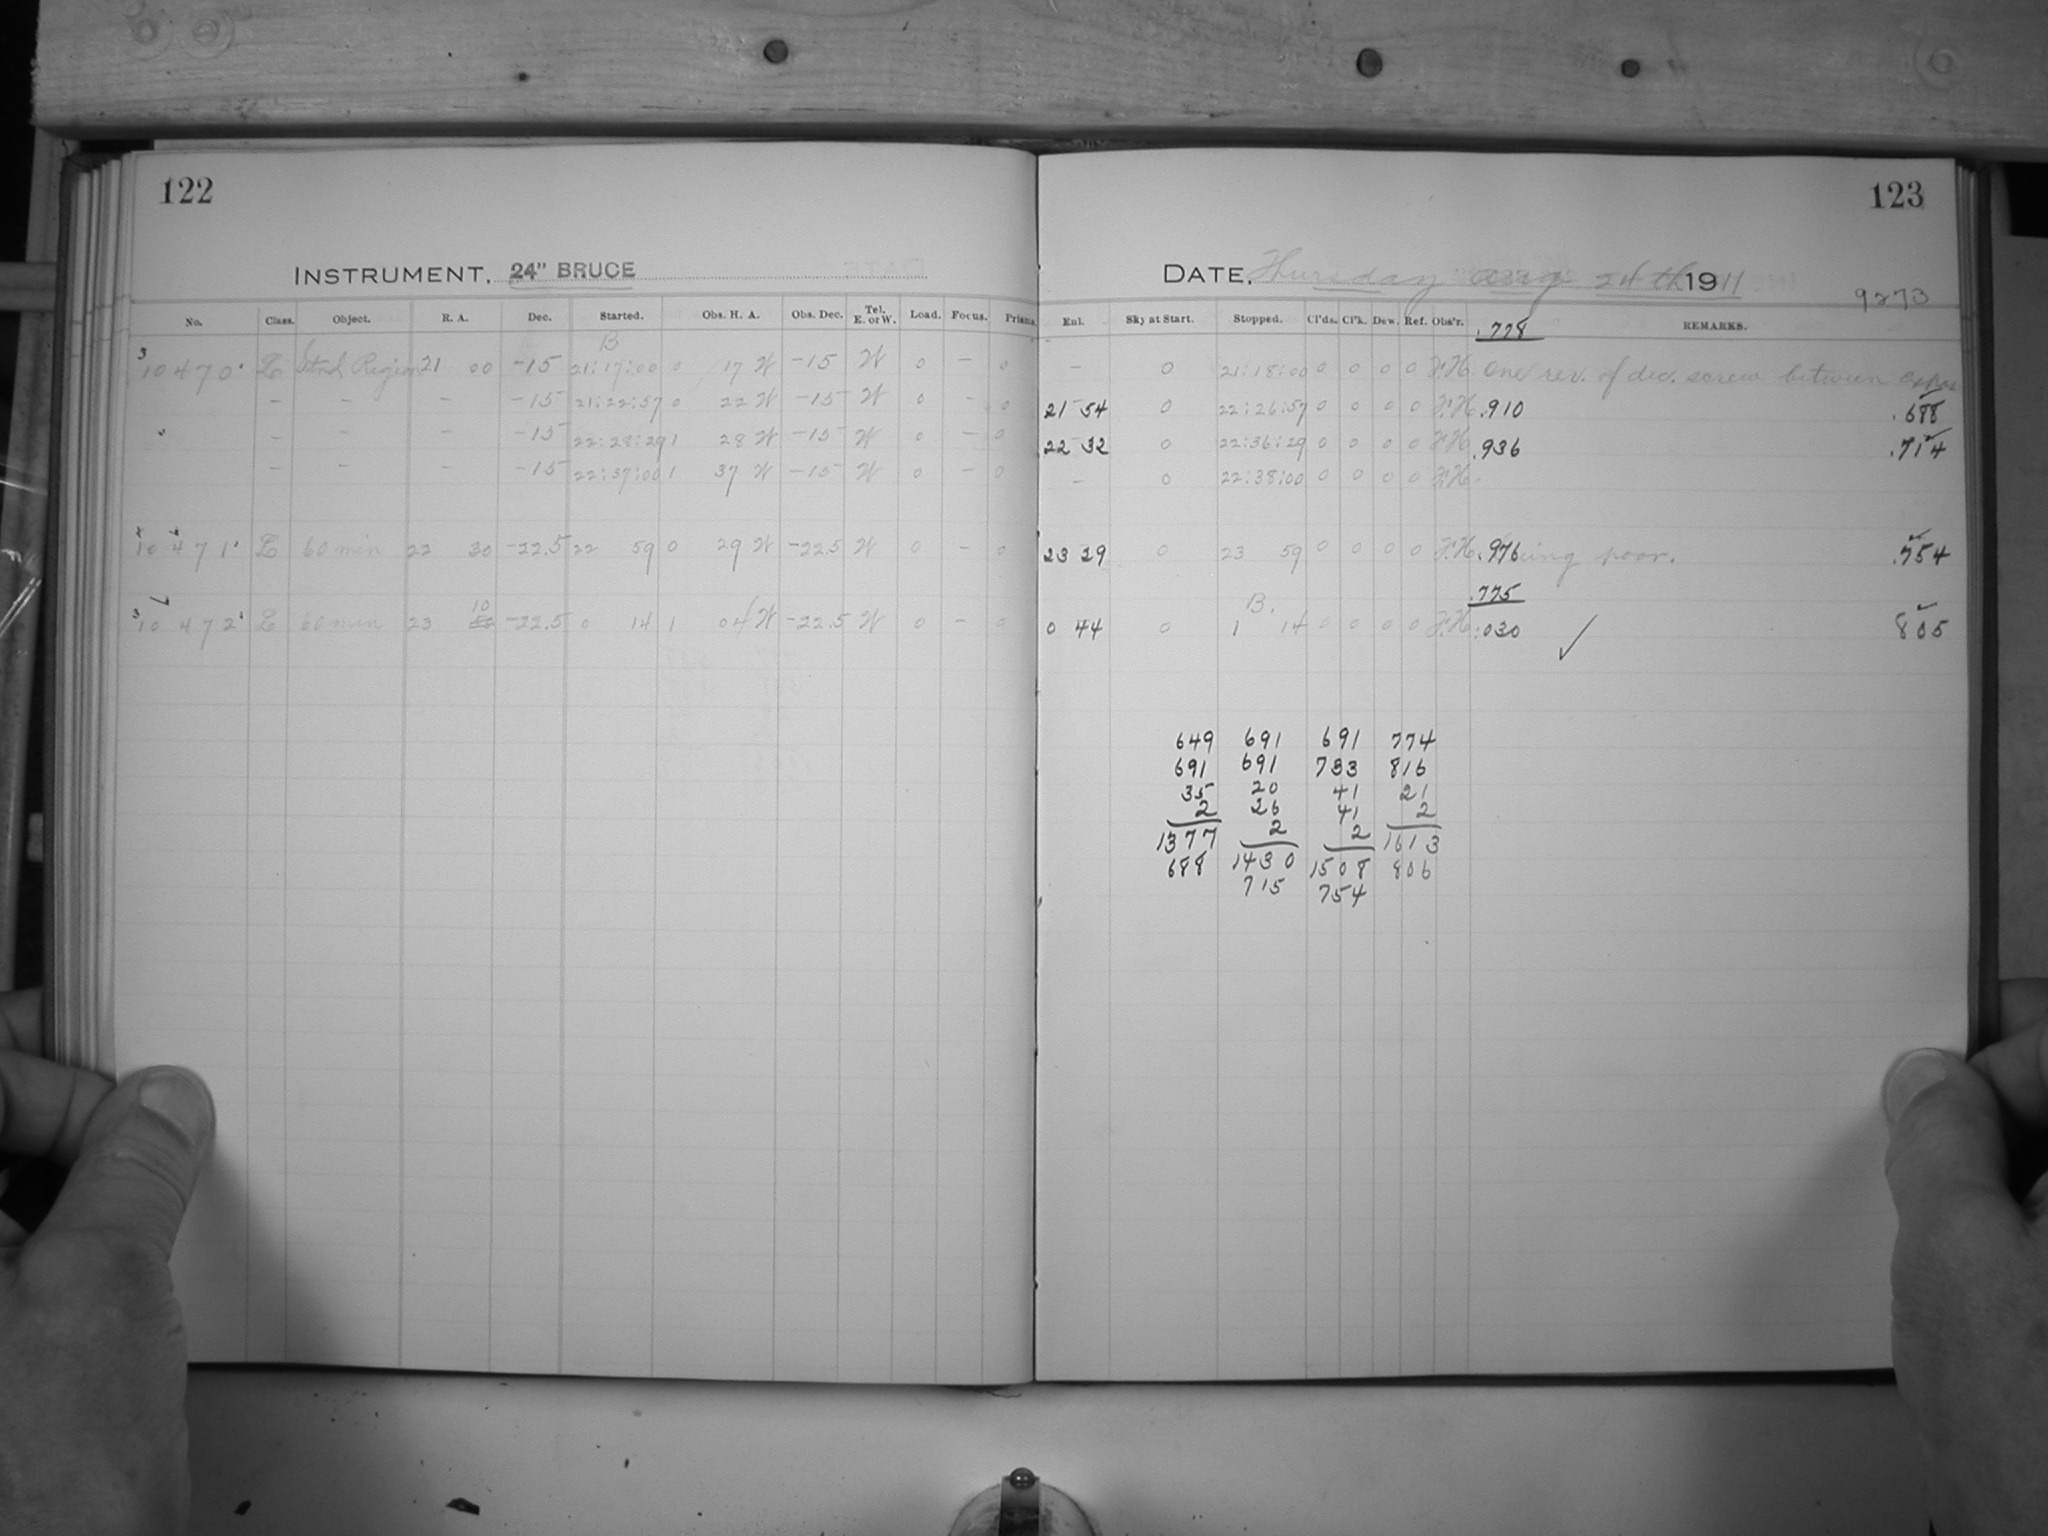 122
INSTRUMENT, 24" BRUCE
No. Class. Object. R. A. Dec. Started. Obs. H. A. Obs. Dec. Tel. E. or W. Load. Focus. Prisms
B
3 10470 L Stnd Region 21 00 -15 21:17:00 0 17 W -15 W 0 - 0
- - - -15 21:22:57 0 22 W -15 W 0 - 0
- - - -15 22:28:29 1 28 W -15 W 0 - 0
- - - -15 22:37:00 1 37 W -15 W 0 - 0
10471 L 60 min 22 30 -22.5 22 59 0 29 W -22.5 W 0 - 0
10
3 10472 L 60 min 23 -22.5 0 14 1 04 W -22.5 W 0 - 0
123
DATE, Thursday Aug 24th 1911
9273
Enl. Sky at Start. Stopped. Cl'ds. Cl'k. Dew. Ref. Obs'r. REMARKS.
.778
- 0 21:18:00 0 0 0 0 F.H. One rev. of dec. screw between expos
21 54 0 22:26:57 0 0 0 0 F.H. .910 .688
22 32 0 22:36:29 0 0 0 0 F.H. .936 .714
- 0 22:38:00 0 0 0 0 F.H.
23 29 0 23 59 0 0 0 0 F.H. .976 Seeing poor. .754
B. .775
0 44 0 1 14 0 0 0 0 F.H. .030 ✓ 805
649 691 691 774
691 691 733 816
35 20 41 21
2 26 41 2
1377 2 2 1613
688 1430 1508 806
715 754